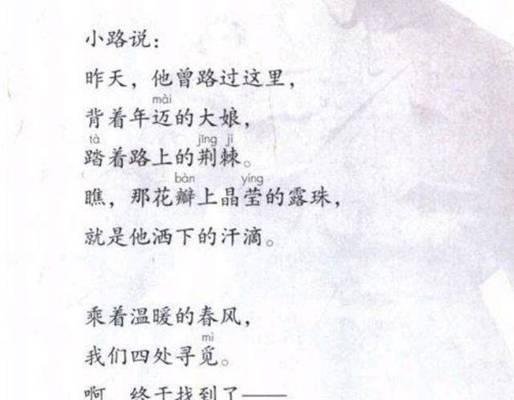 小路说：
昨天，他曾路过这里，
mài
背着年迈的大娘，
tà jīng jí
踏着路上的荆棘。
bàn yíng
瞧，那花瓣上晶莹的露珠，
就是他洒下的汗滴。
乘着温暖的春风，
mì
我们四处寻觅。
啊，终于找到了——